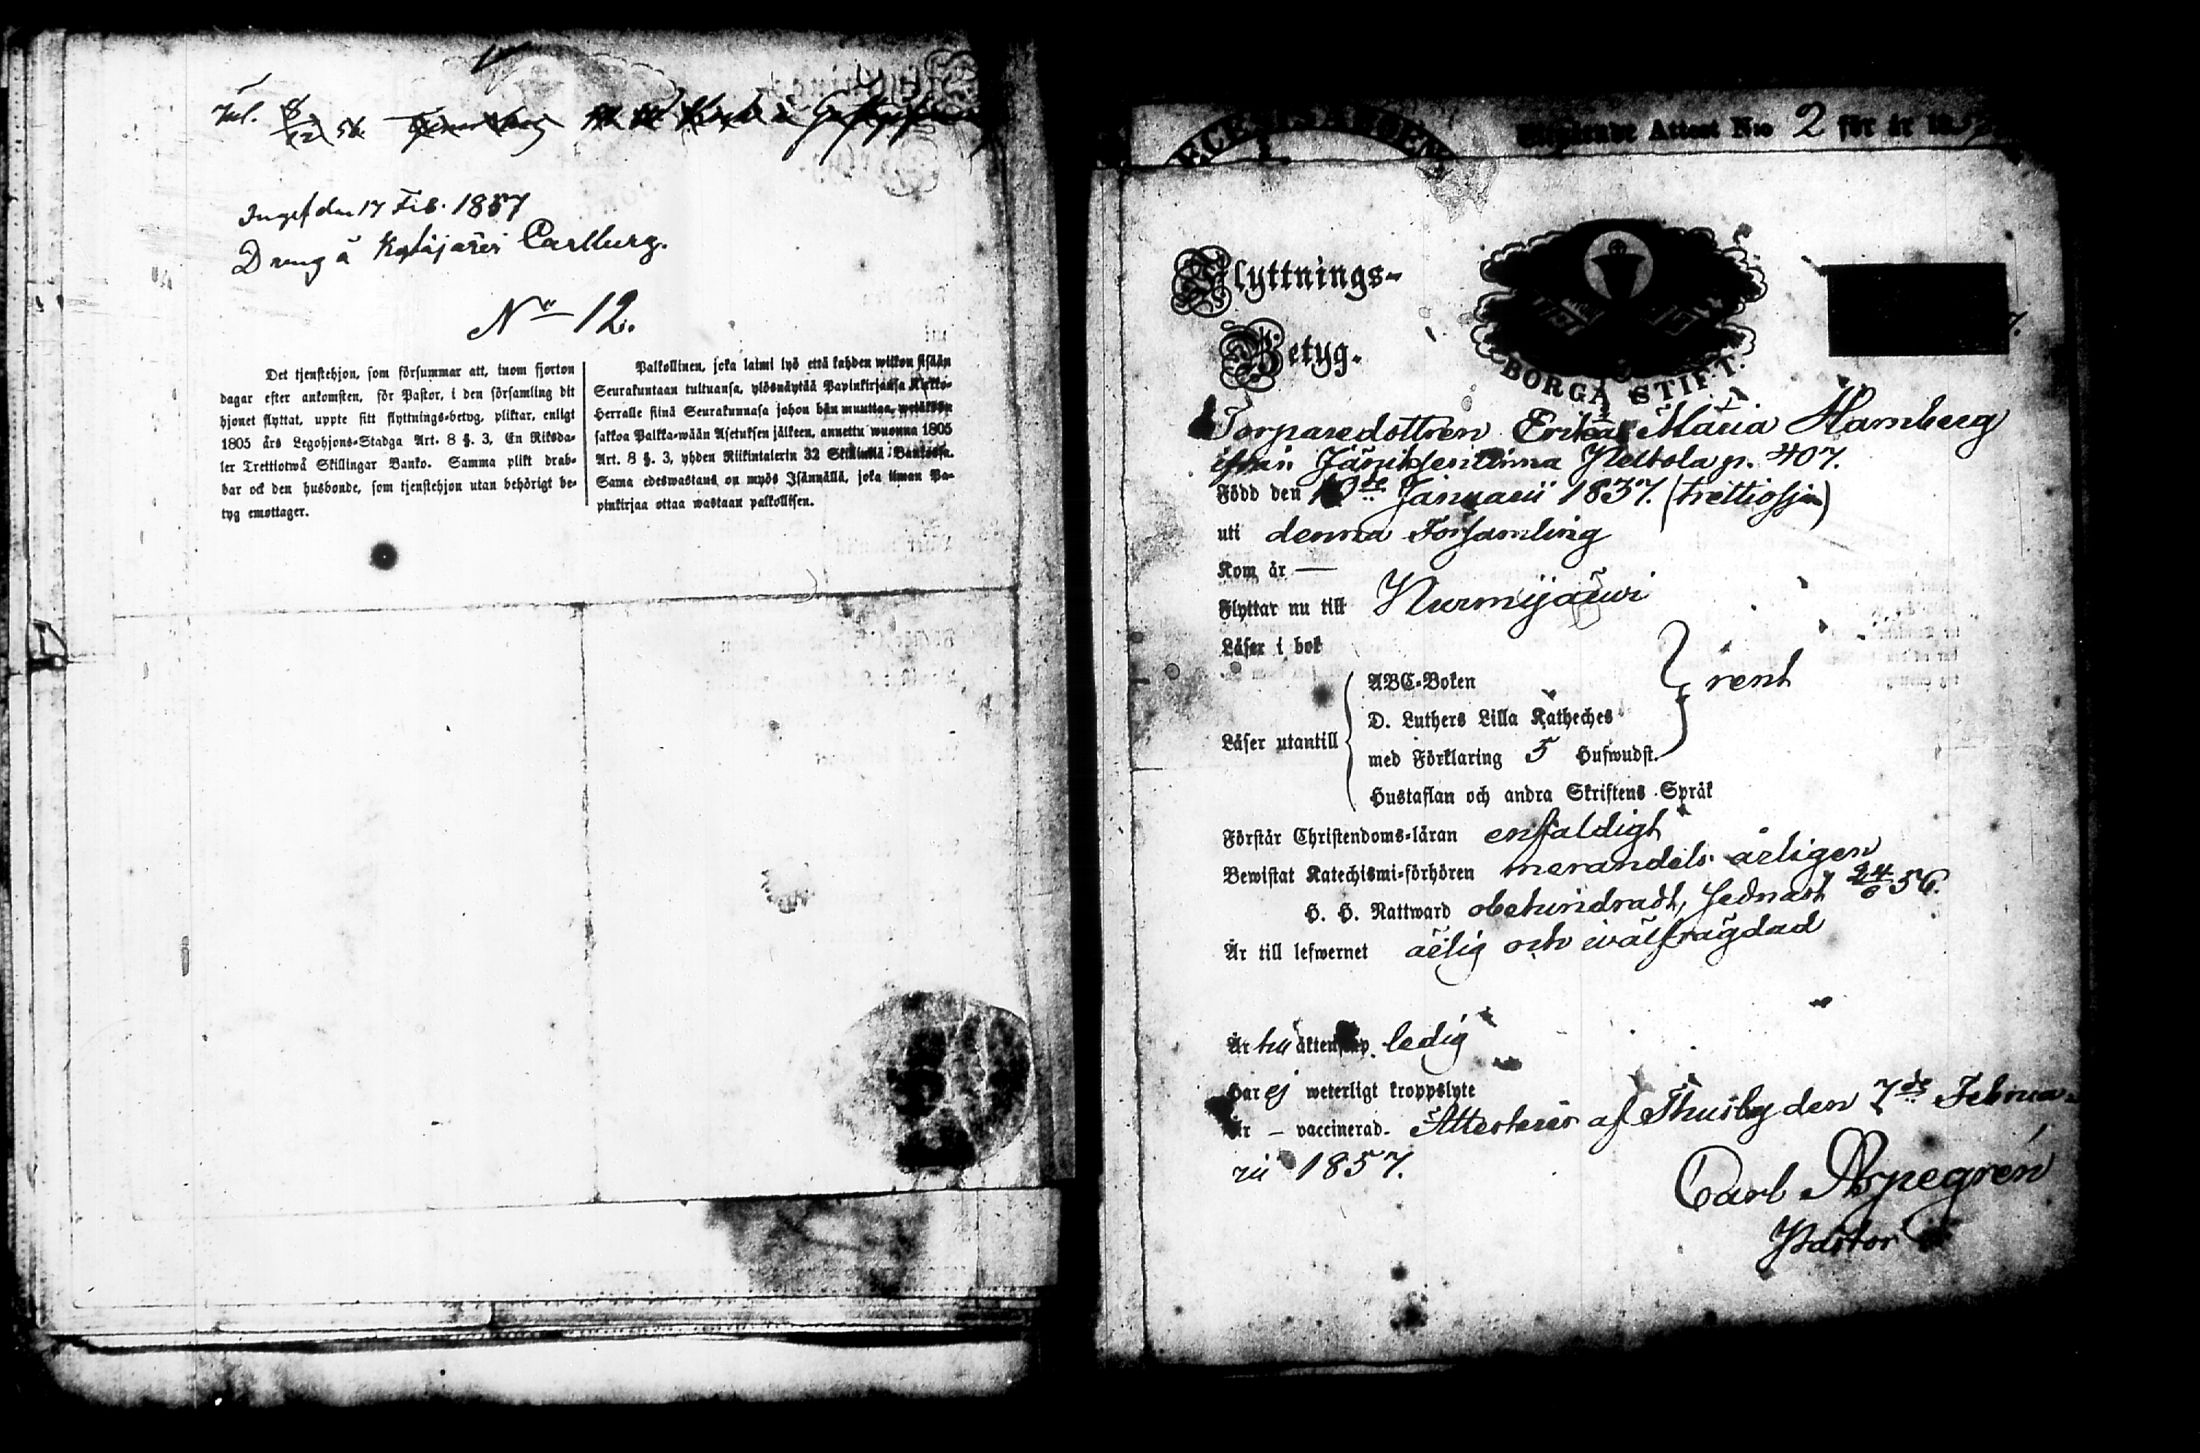 Ingef den 17 Feb. 1857
Dreng å Carlberg.
No 12.
Det tjenstehjon, som försummar att, inom fjorton
dagar efter ankomsten, för Pastor, i den församling dit
hjonet flyttat, uppte sitt flyttnings-betyg, pliktar, enligt
1805 års Legohjons-Stadga Art. 8 §. 3, En Riksda-
ler Trettiotwå Skillingar Banko. Samma plikt drab-
bar ock den husbonde, som tjenstehjon utan behörigt be-
tyg emottager.
Palkollinen, joka laimi lyö että kahden wiikon sisään
Seurakuntaan tultuansa, ylösnäytää Papinkirjansa Kirkko-
Herralle siinä Seurakunnasa johon hän muuttaa, wetäköön
sakkoa Palkka-wään Asetuksen jälkeen, annettu wuonna 1805
Art. 8 §. 3, yhden Riikintalerin 32 Skillinkiä Bankossa.
Sama edeswastaus on myös Isännällä, joka ilman Pa-
pinkirjaa ottaa wastaan palkollisen.
Attest No 2 för år 18
Flyttnings-
Betyg.
BORGÅ STIFT.
Torparedottren Erika Maria Hamberg
ifrån Nettola p. 407.
Född den 10de Januarii 1837. (trettiosju)
uti denna Församling
Kom år —
Flyttar nu till Nurmijärwi
Läser i bok
Läser utantill
ABC-Boken
D. Luthers Lilla Katheches
med Förklaring 5 Hufwudst.
Hustaflan och andra Skriftens Språk
rent
Förstår Christendoms-läran enfaldigt
Bewistat Katechismi-förhören merandels årligen
H. H. Nattward obehindradt, sednast 24/8 56.
Är till lefwernet ärlig och wälfrägdad
Är till äktenskap ledig
Har ej weterligt kroppslyte
Är — vaccinerad. Attesterar af Thusby den 7de Februa-
rii 1857.
Carl Aspegrén
Pastor